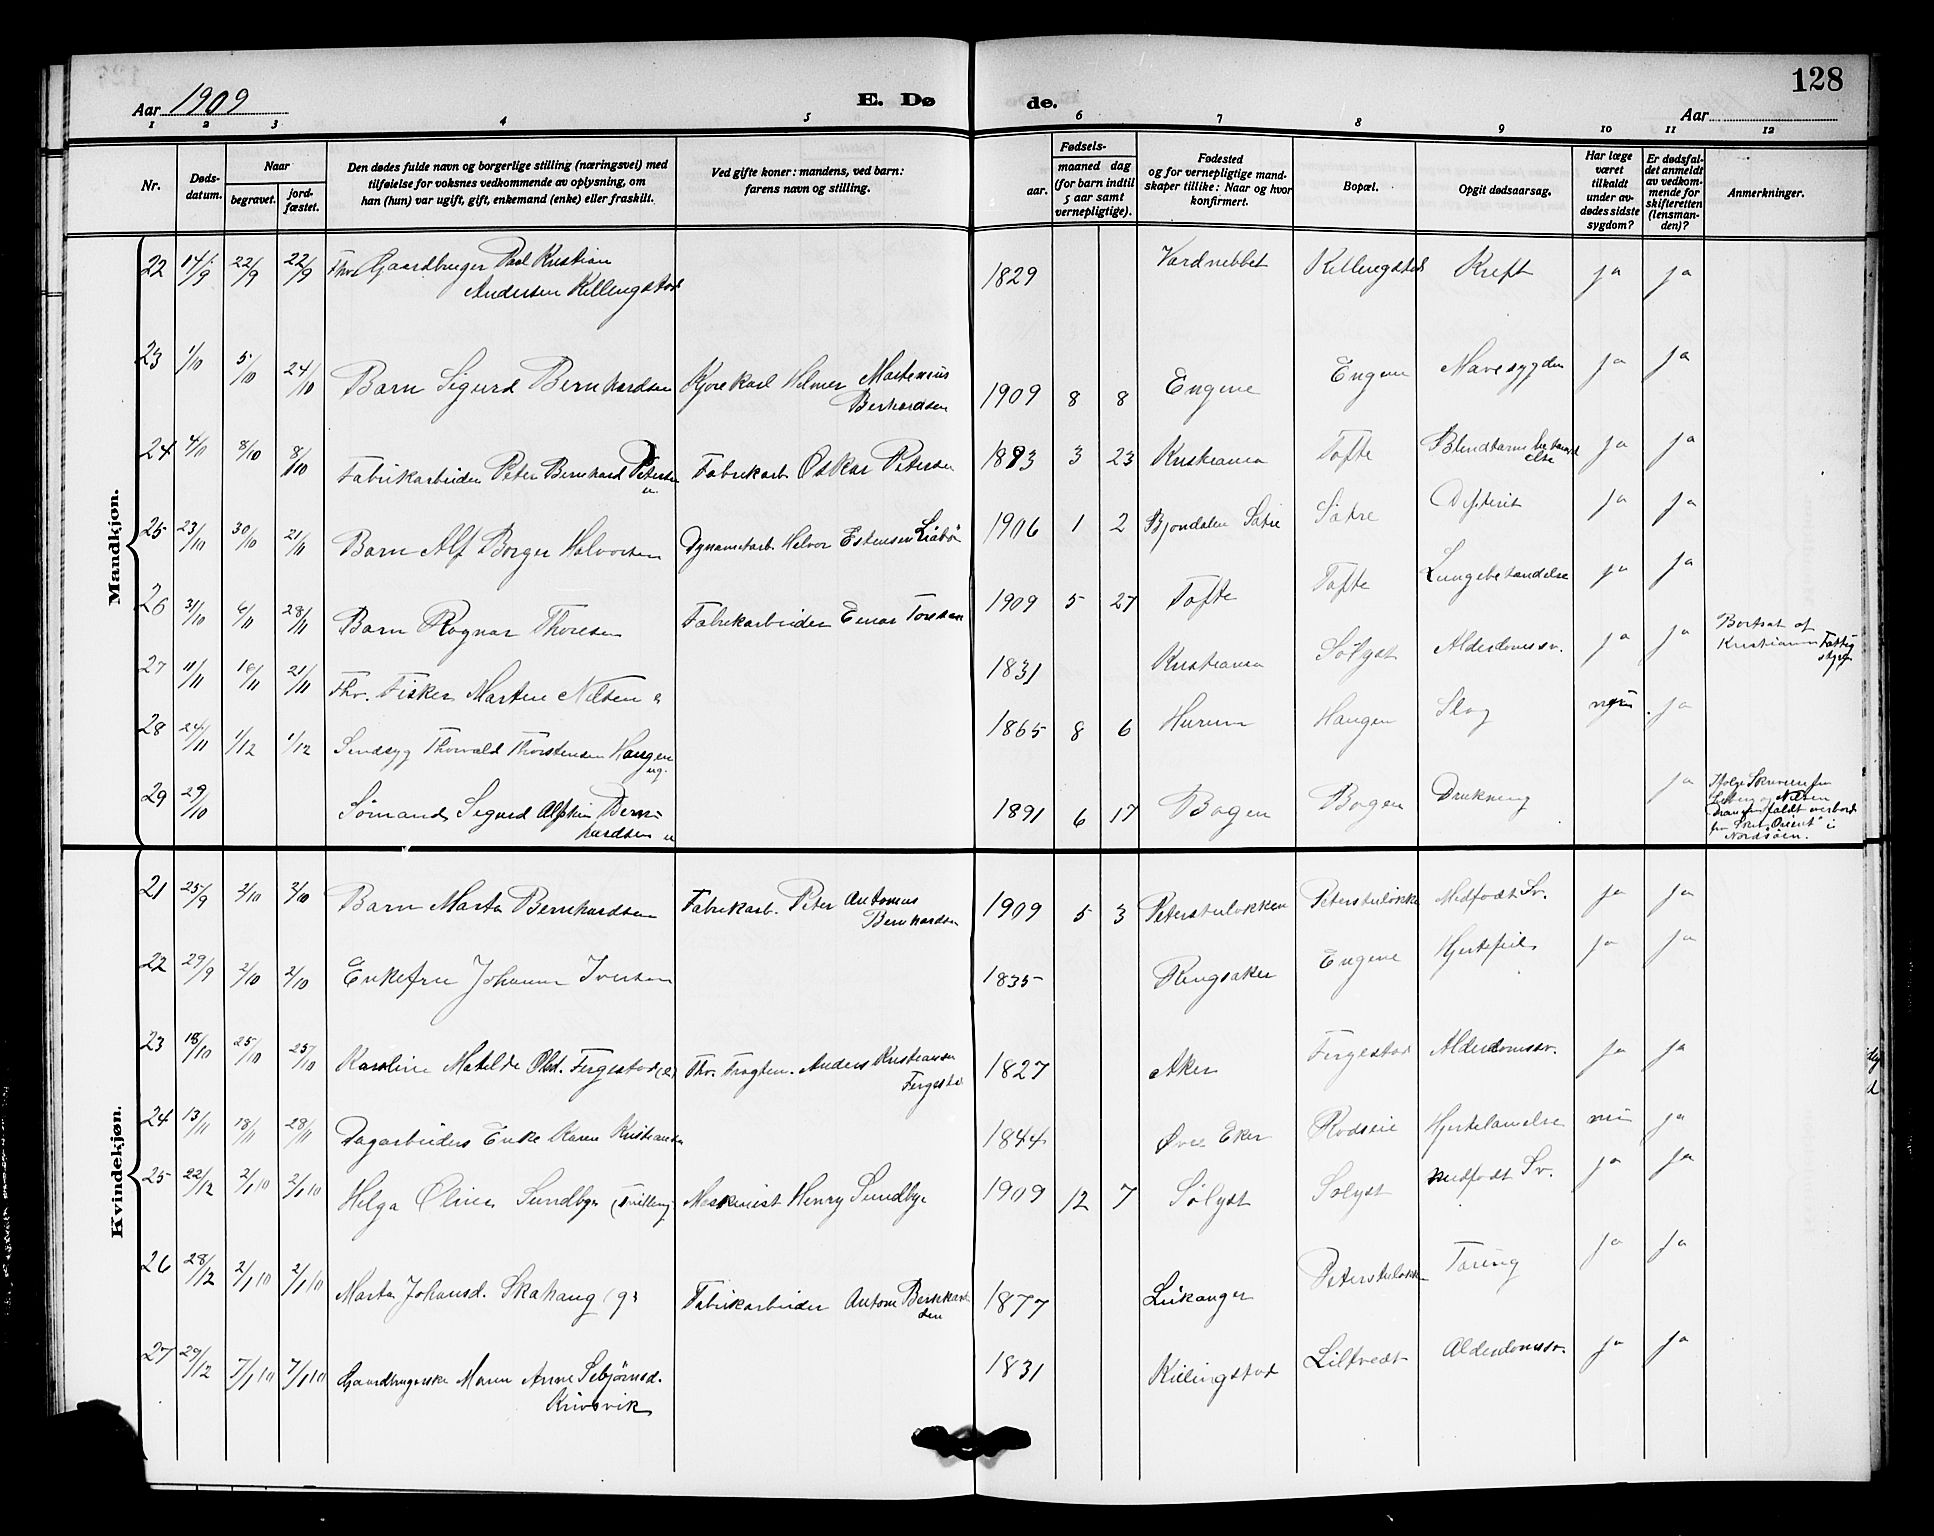 128
Aar 1909
E. Dø
de.
Aar
1 2 3 4 5 6 7 8 9 10 11 12
Nr.
Døds-
datum.
Naar
begravet.
jord-
fæstet.
Den dødes fulde navn og borgerlige stilling (næringsvei) med
tilføielse for voksnes vedkommende av oplysning, om
han (hun) var ugift, gift, enkemand (enke) eller fraskilt.
Ved gifte koner: mandens, ved barn:
farens navn og stilling.
Fødsels-
aar.
maaned dag
(for barn indtil
5 aar samt
vernepligtige).
Fødested
og for vernepligtige mand-
skaper tillike: Naar og hvor
konfirmert.
Bopæl.
Opgit dødsaarsag.
Har læge
været
tilkaldt
under av-
dødes sidste
sygdom?
Er dødsfal-
det anmeldt
av vedkom-
mende for
skifteretten
(lensman-
den)?
Anmerkninger.
Mandkjøn.
22 14/9 22/9 22/9 Fhv. Gaardbruger Paul Kristian 1829 Killingstad Kreft ja ja
Andersen Killingstad
23 1/10 5/10 24/10 Barn Sigurd Bernhardsen Kjørekarl Helmer Martenius 1909 8 8 Engene Engene Mavesygdom ja ja
Berhardsen
24 4/10 8/10 8/10 Fabrikarbeider Peter Bernhard Petersen Fabrikarb Oskar Petersen 1893 3 23 Kristiania Tofte ja ja
u
25 23/10 30/10 21/11 Barn Alf Borger Halvorsen Dynamitarb. Halvor Estensen 1906 1 2 Bjøndalen Sætre Sætre Difterit ja ja
26 31/10 6/11 28/11 Barn Ragnar Thoresen Fabrikarbeider Einar 1909 5 27 Tofte Tofte Lungebetændelse ja ja
27 11/11 16/11 21/11 Fhv. Fisker Martin Nilsen e 1831 Kristiania Sølyst Alderdomssv. ja ja Bortsat af
Kristiania Fattig
styre
28 24/11 1/12 1/12 Sindsyg Thorvald Thorstensen Haugen 1865 8 6 Hurum Haugen Slag ja
ug.
29 29/10 Sømand Sigurd Bern- 1891 6 17 Bogen Bogen Drukning ja
hardsen u
Drammen faldt overbord
fra Skib "Orient" i
Nordsøen.
Kvindekjøn.
21 25/9 2/10 2/10 Barn Marta Bernhardsen Fabrikarb. Peter Antonius 1909 5 3 Peterstuløkken Peterstuløkken Medfødt Sv. ja ja
Bernhardsen
22 29/9 2/10 2/10 Enkefru Johanne Iversen 1835 Ringsaker Engene Hjertefeil ja ja
23 18/10 25/10 25/10 Karoline Matilde Olsd. Fergestad (e) Fhv. Anders Kristiansen 1827 Aker Fergestad Alderdomssv. ja ja
Fergestad
24 13/11 18/11 28/11 Dagarbeiders Enke Karen Kristiansen 1844 Øvre Eker Rødseie Hjertelammelse nei ja
25 22/12 2/1 10 2/1 10 Helga Oline Sundbye (Tvilling) Maskinist Henry Sundbye 1909 12 7 Sølyst Sølyst medfødt Sv. ja ja
26 28/12 2/1 10 2/1 10 Marta Johansd. Skahaug (g) Fabrikarbeider Anton Bernhard 1877 Leikanger Peterstuløkken Tæring ja ja
sen
27 29/12 7/1 10 7/1 10 Gaardbrugerske Maren Anne Sebjørnsd. 1831 Killingstad Liltvedt Alderdomssv. ja ja
Knivsvik